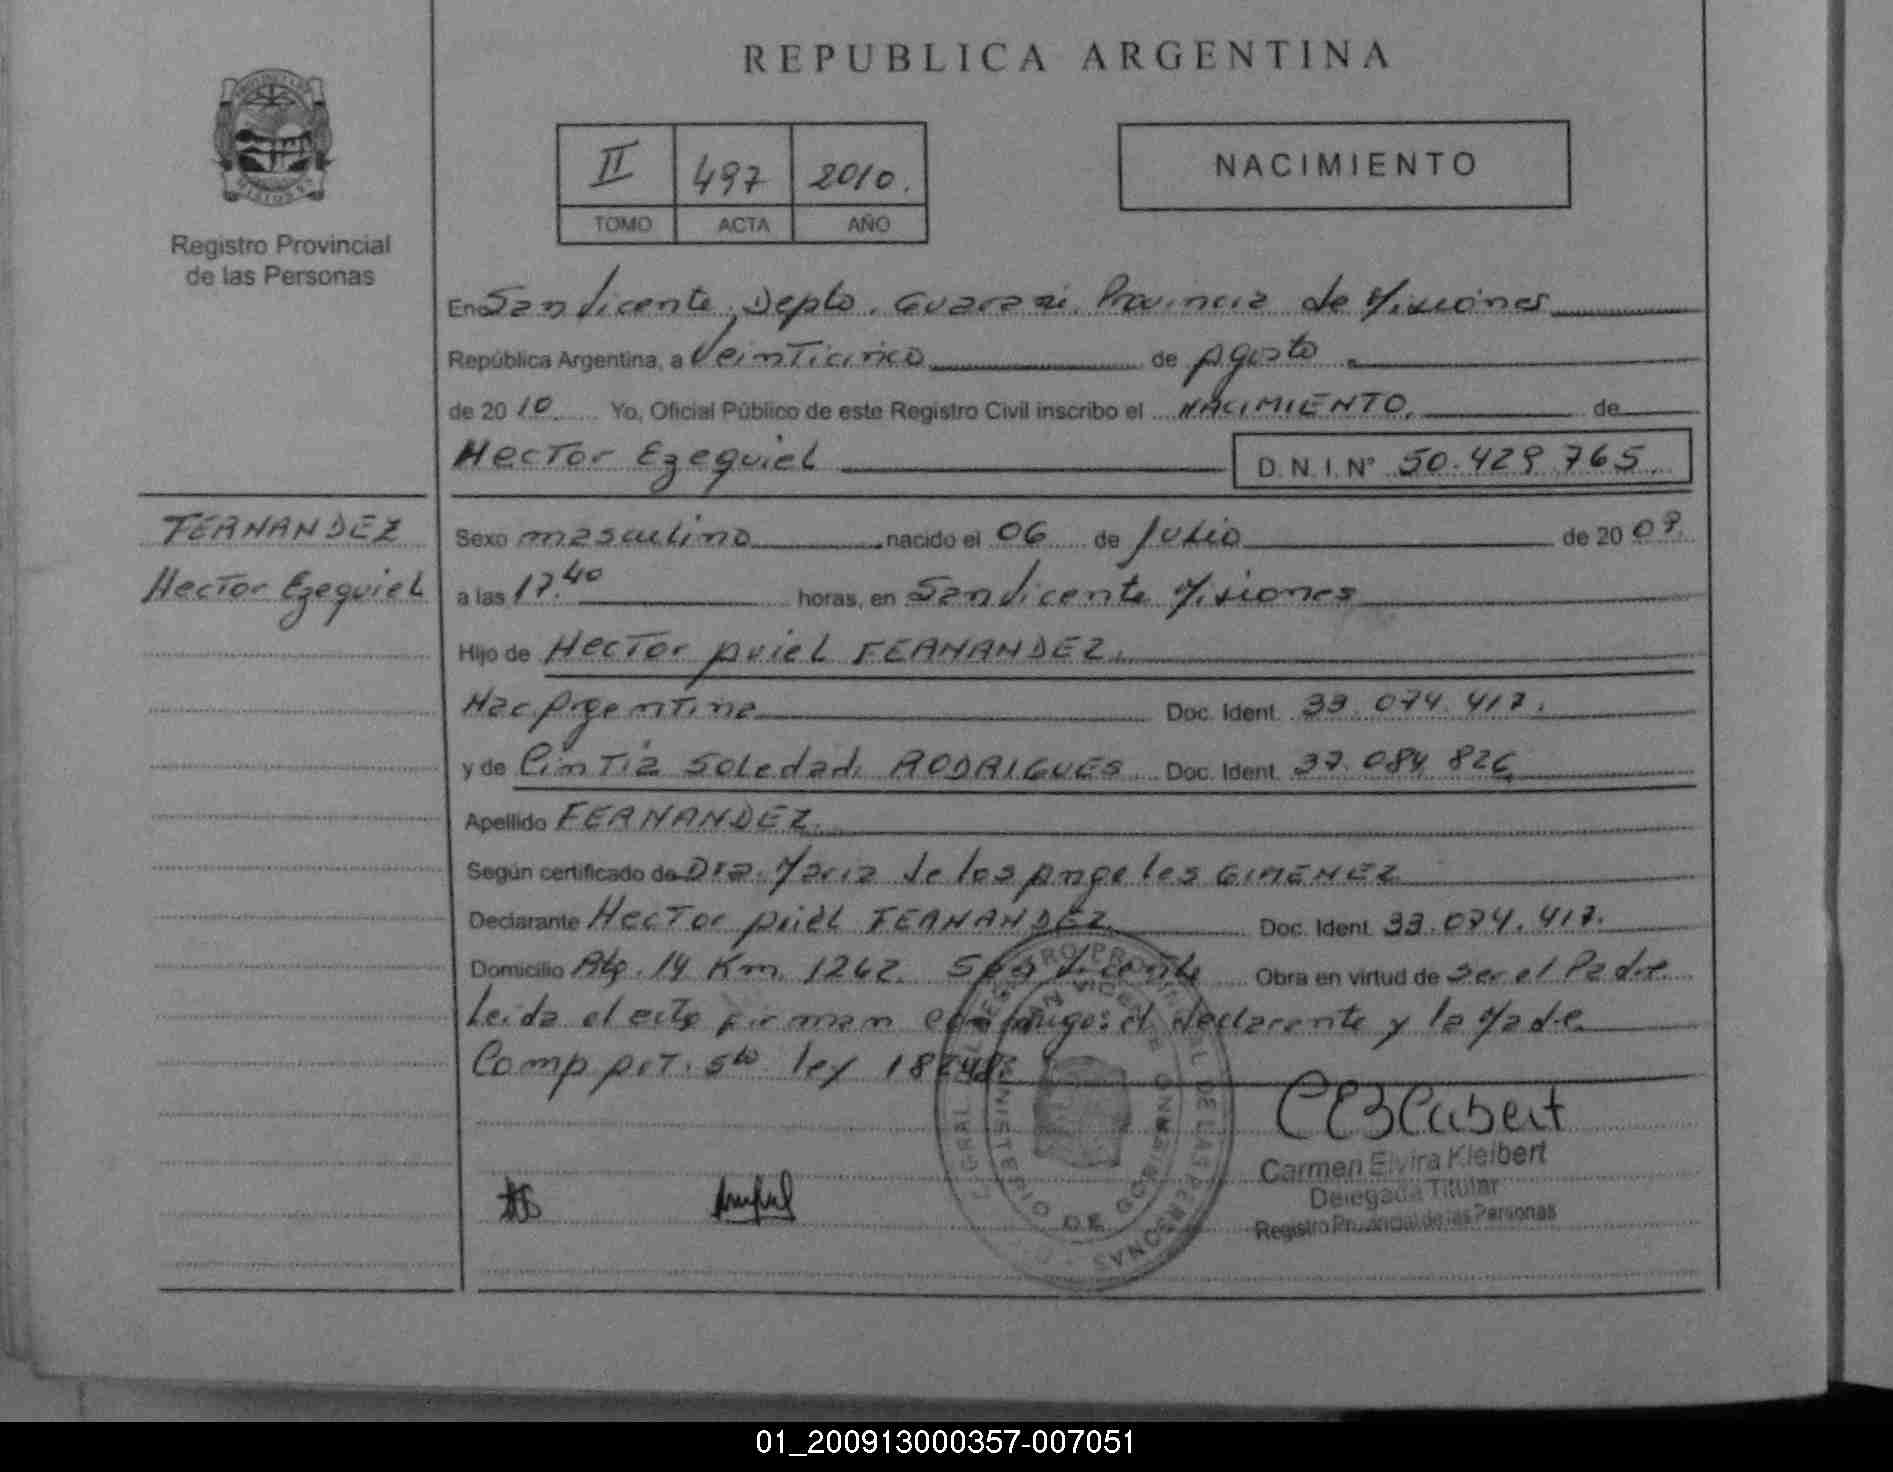 REPUBLICA ARGENTINA
Registro Provincial
de las Personas
II 497 2010.
TOMO ACTA AÑO
NACIMIENTO
En San Vicente, Depto. Guarani. Provincia de Misiones
República Argentina, a Veinticinco de Agosto
de 2010 Yo, Oficial Público de este Registro Civil inscribo el NACIMIENTO. de
Hector Ezequiel D.N.I. N° 50.429.765.
FERNANDEZ
Hector Ezequiel
Sexo masculino nacido el 06 de Julio de 2009.
a las 17.40 horas, en San Vicente Misiones
Hijo de Hector Ariel FERNANDEZ.
Nac. Argentina Doc. Ident. 33.074.417.
y de Cintia Soledad RODRIGUES Doc. Ident. 37.084.826
Apellido FERNANDEZ.
Según certificado de Dra. Maria de los Angeles GIMENEZ
Declarante Hector Ariel FERNANDEZ Doc. Ident. 33.074.417.
Domicilio 14 Km. 1262. San Vicente Obra en virtud de ser el Padre
Leida el acta firman conmigo: el declarante y la Madre
Comp. art. 5to ley
REGISTRO PROVINCIAL DE LAS PERSONAS
MINISTERIO DE GOBIERNO
SAN VICENTE
Carmen Elvira Kleibert
Delegada Titular
Registro Provincial de las Personas
01_200913000357-007051